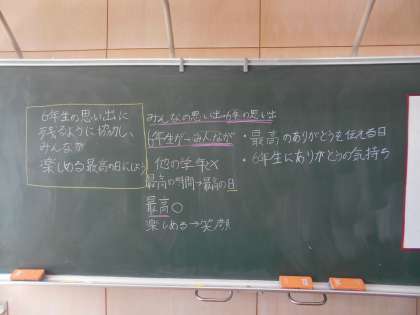 6年生の思い出に
残るように協力し、
みんなが
楽しめる最高の日にしよう
みんなの思い出→6年の思い出
6年生が→みんなが
他の学年×
最高の時間→最高の日
最高○
楽しめる→笑顔
・最高のありがとうを伝える日
・6年生にありがとうの気持ち